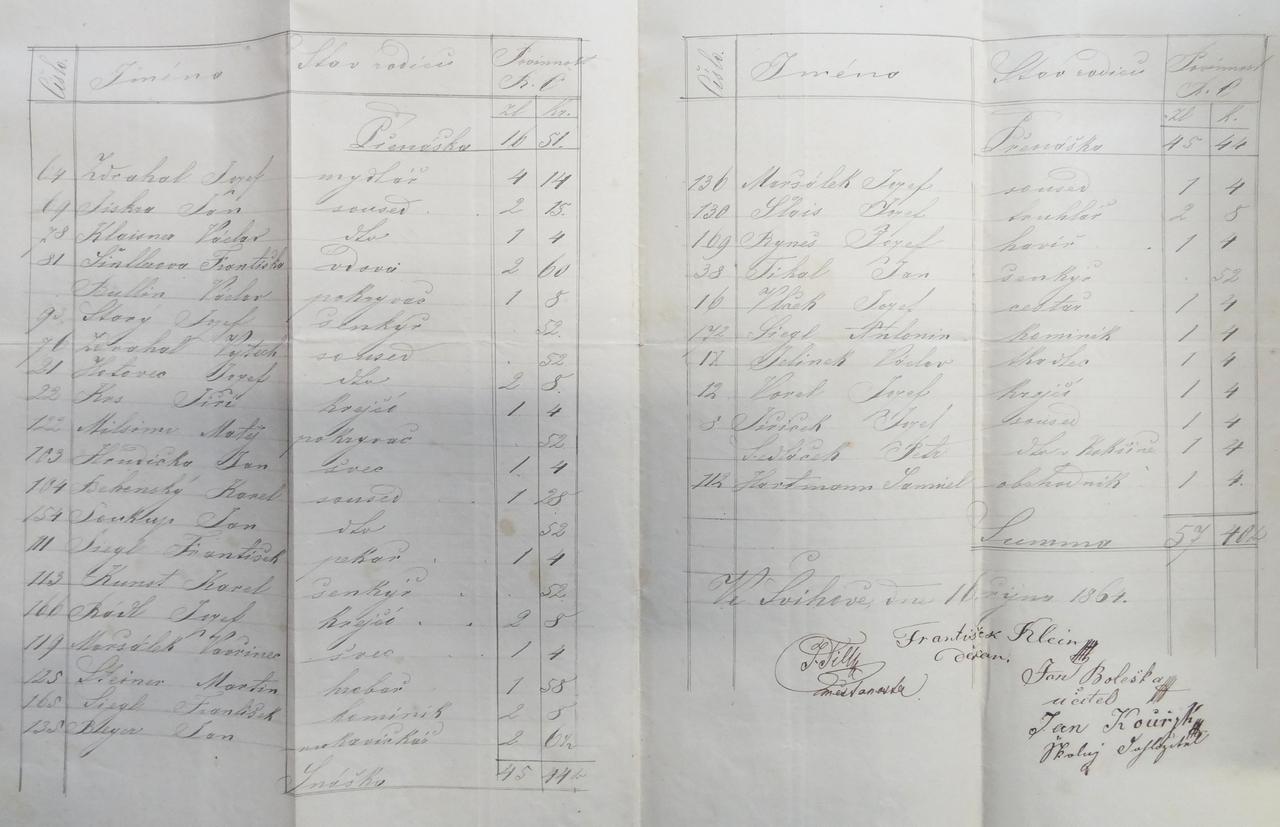 Číslo. Jméno Stav rodičů
zl Kr.
Přenáška 16 51.
64 Zdrahal Josef mydlář 4 14
69 Jiskra Jan soused 2 15.
78 Václav dto 1 4
81 Františka vdova 2 60
Václav pokryvač 1 8
Starý Josef šenkýř 52.
76 Zdrahal Vojtěch soused 52
21 Hotovec Josef dto 2 8.
22 Kos Jiří krejčí 1 4
122 Matěj pokryvač 52
103 Hrudička Jan švec 1 4
104 Karel soused 1 28
154 Soukup Jan dto 52
111 Siegl František pekař 1 4
113 Kunst Karel šenkýř 52
166 Rádl Josef krejčí 2 8
119 Maršálek Vavřinec švec 1 4
125 Steiner Martin 1 58
165 Siegl František kominík 2 8
135 Jan 2
Snáška 45 44
Číslo. Jméno Stav rodičů
zl. k.
Přenáška 45 44
136 Maršálek Josef soused 1 4
130 Josef truhlář 2 8
109 Josef 1 4
38 Tikal Jan šenkýř 52
16 Vlček Josef cestář 1 4
172 Siegl Antonín kominík 1 4
17 Jelínek Václav tkadlec 1 4
12 Vorel Josef krejčí 1 4
8 Jiříček Josef soused 1 4
Sedláček Petr dto 1 4
112 Hartmann Samuel obchodník 1 4.
Summa 57 40
Ve Švihově, dne října 1864.
František Klein
děkan.
měšťanosta
Jan Boleška
učitel
Jan Kouřík
Školní